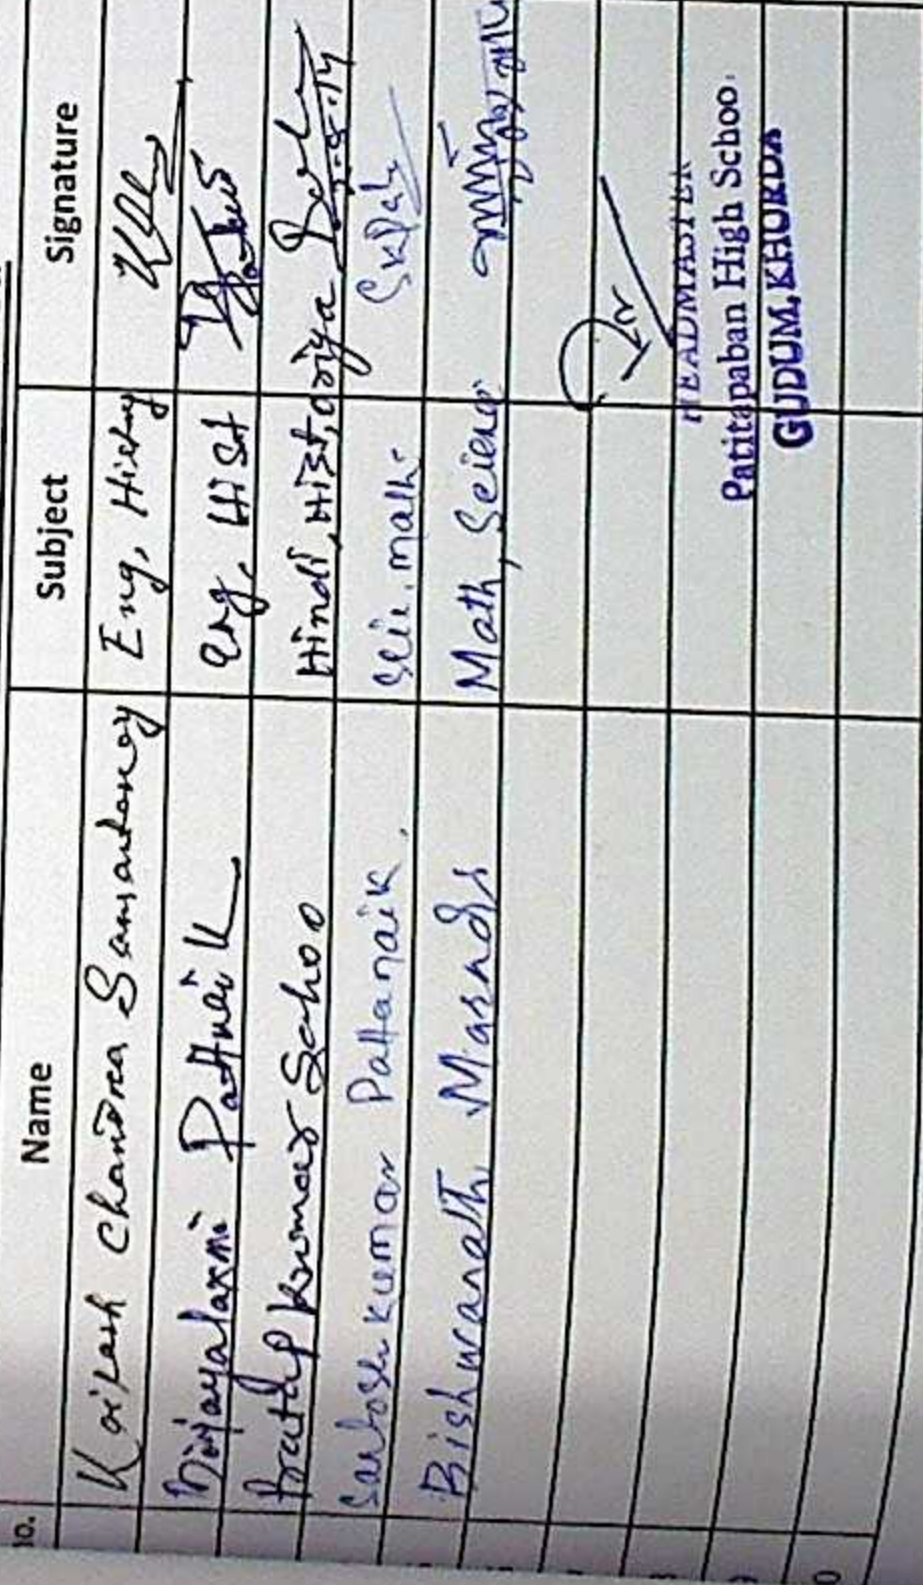 no. Name Subject Signature
Kailash Chandra Samantaray Eng, History
Bijayalaxmi Pattnaik Eng, Hist
Pratap Kumar Sahoo Hindi, Hist, oriya
Santosh Kumar Pattanaik. Scie. math
Bishwanath Marndi Math, Science
HEADMASTER
Patitapaban High School
GUDUM, KHURDA
0